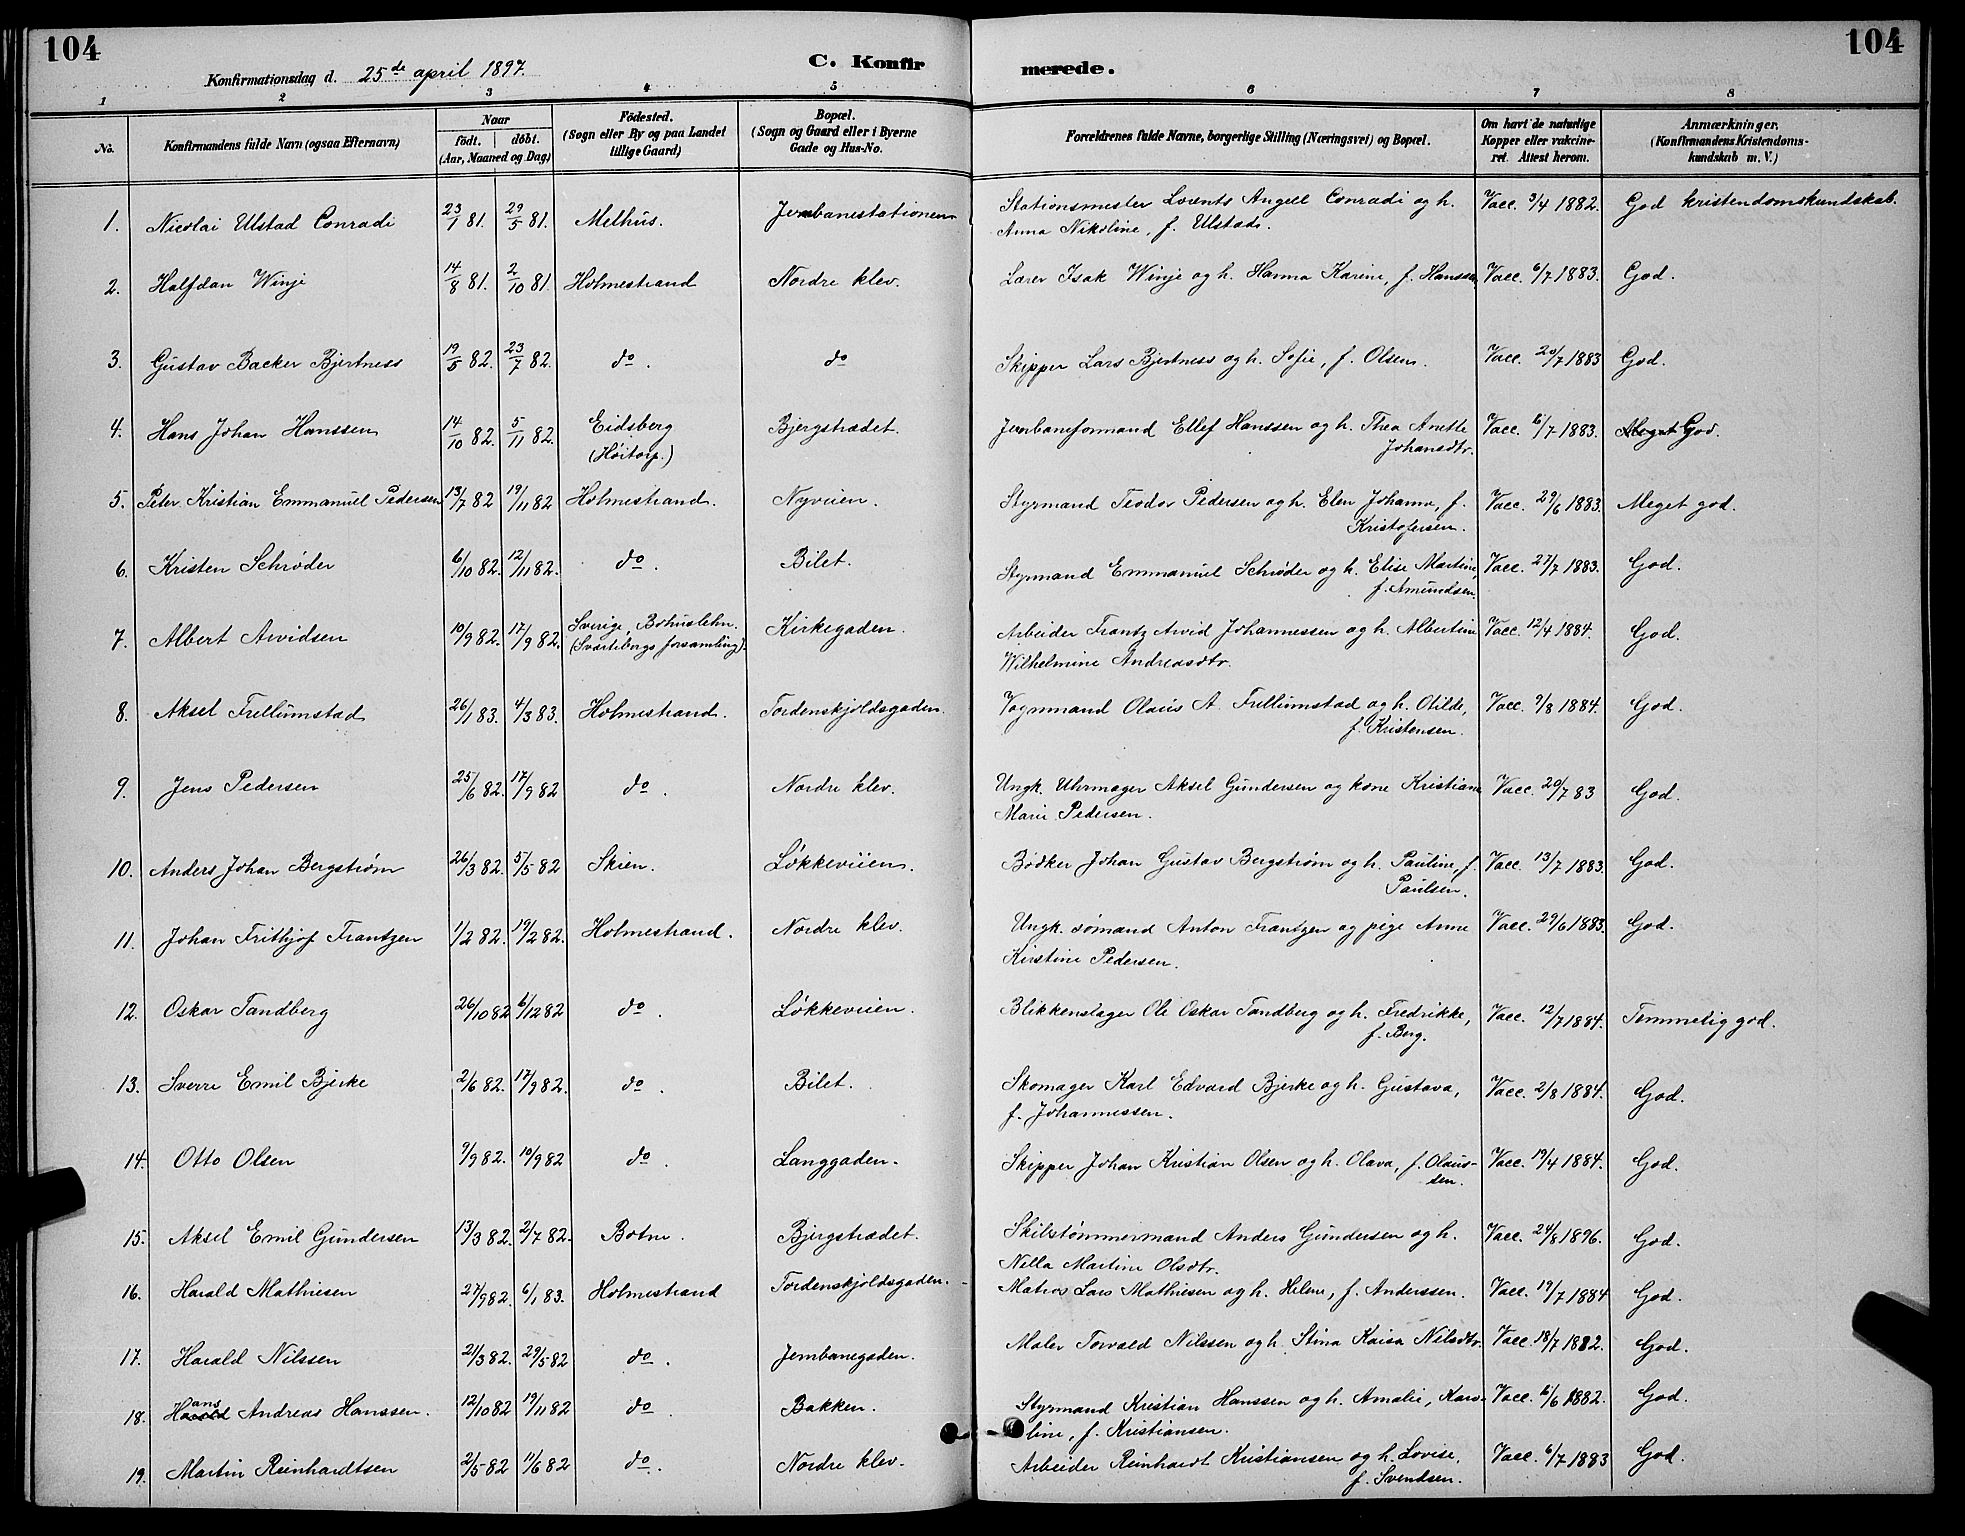 104
104
Konfirmationsdag d. 25de april 1897.
C. Konfir
merede.
1 2 3 4 5 6 7 8
No.
Konfirmandens fulde Navn (ogsaa Efternavn)
Naar
født. døbt.
(Aar, Maaned og Dag)
Fødested.
(Sogn eller By og paa Landet
tillige Gaard)
Bopæl.
(Sogn og Gaard eller i Byerne
Gade og Hus-No.
Forældrenes fulde Navne, borgerlige Stilling (Næringsvei) og Bopæl.
Om havt de naturlige
Kopper eller vakcine-
ret. Attest herom.
Anmærkninger.
(Konfirmandens Kristendoms-
kundskab m. V.)
1. Nicolai Ulstad Conradi 23/1 81. 29/5 81. Melhus. Jernbanestationen Stationsmester Lorents Angell Conradi og h. Vacc. 3/4 1882. God kristendomskundskab.
Anna Nikoline, f. Ulstad.
2. Halfdan Winje 14/8 81. 2/10 81. Holmestrand Nordre klev. Lærer Isak Winje og h. Hanna Karine, f. Hanssen Vacc. 6/7 1883. God.
3. Gustav Backer Bjertness 19/5 82. 23/7 82. do. do Skipper Lars Bjertness og h. Sofie, f. Olsen. Vacc. 20/7 1883 God.
4. Hans Johan Hanssen 14/10 82. 5/11 82. Eidsberg Bjergstrædet. Jernbaneformand Ellef Hanssen og h. Thea Anette Vacc. 6/7 1883. Meget God.
(Høitorp.) Johansdtr.
5. Peter Kristian Emmanuel Pedersen 13/7 82 19/11 82 Holmestrand. Nyveien. Styrmand Teodor Pedersen og h. Elen Johanne, f. Vacc. 29/6 1883. Meget god.
Kristofersen.
6. Kristen Schrøder 6/10 82. 12/11 82. do. Bilet. Styrmand Emmanuel Schrøder og h. Elise Martine, Vacc. 27/7 1883. God.
f. Amundsen.
7. Albert Arvidsen 10/9 82. 17/9 82. Sverige Bohuslehn. Kirkegaden. Arbeider Frantz Arvid Johannessen og h. Albertine Vacc. 12/4 1884. God.
(Svarteborgs forsamling). Wilhelmine Andreasdtr.
8. Aksel Frellumstad 26/1 83. 4/3 83. Holmestrand. Tordenskjoldsgaden. Vognmand Olaus A. Frellumstad og h. Otilde, Vacc. 9/8 1884. God.
f. Kristensen.
9. Jens Pedersen 25/6 82. 17/9 82 do. Nordre klev. Ungk. Uhrmager Aksel Gundersen og kone Kristiane Vacc. 20/7 83 God.
Marie Pedersen.
10. Anders Johan Bergstrøm 26/3 82. 5/5 82 Skien. Løkkeveien. Bødker Johan Gustav Bergstrøm og h. Pauline, f. Vacc. 13/7 1883. God.
Paulsen.
11. Johan Frithjof Frantzen 1/2 82. 19/2 82. Holmestrand. Nordre klev. Ungk. sømand Anton Frantzen og pige Anne Vacc. 29/6 1883. God.
Kirstine Pedersen.
12. Oskar Tandberg 26/10 82 6/12 82 do. Løkkeveien. Blikkenslager Ole Oskar Tandberg og h. Fredrikke, Vacc. 12/7 1884. Temmelig god.
f. Berg.
13. Sverre Emil Bjerke 2/6 82. 17/9 82. do. Bilet. Skomager Karl Edvard Bjerke og h. Gustava, Vacc. 2/8 1884. God.
f. Johannessen.
14. Otto Olsen 9/9 82. 10/9 82 do. Langgaden. Skipper Johan Kristian Olsen og h. Olava, f. Olaus- Vacc. 19/4 1884. God.
sen.
15. Aksel Emil Gundersen 13/3 82. 2/7 82. Botne. Bjergstrædet. Skibstømmermand Anders Gundersen og h. Vacc. 24/8 1896. God.
Nella Martine Olsdtr.
16. Harald Mathiesen 27/9 82. 6/1 83. Holmestrand Tordenskjoldsgaden. Matros Lars Mathiesen og h. Helene, f. Anderssen. Vacc. 19/7 1884 God.
17. Harald Nilssen 21/3 82. 29/5 82 do. Jernbanegaden. Maler Torvald Nilssen og h. Stina Kaisa Nilsdtr. Vacc. 18/7 1882. God.
18. Hans Andreas Hanssen. 12/10 82 19/11 82 do. Bakken. Styrmand Kristian Hanssen og h. Amalie, Karo- Vacc. 6/6 1882. God.
line, f. Kristiansen.
19. Martin Reinhardtsen 2/5 82 11/6 82 do. Nordre klev. Arbeider Reinhardt Kristiansen og h. Lovise, Vacc. 6/7 1883 God.
f. Svendsen.